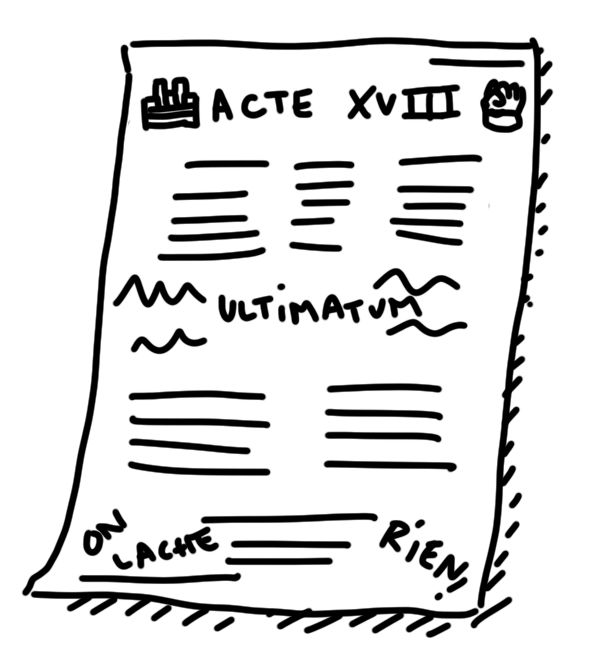 ACTE XVIII
ULTiMATUM
ON LACHE RiEN!